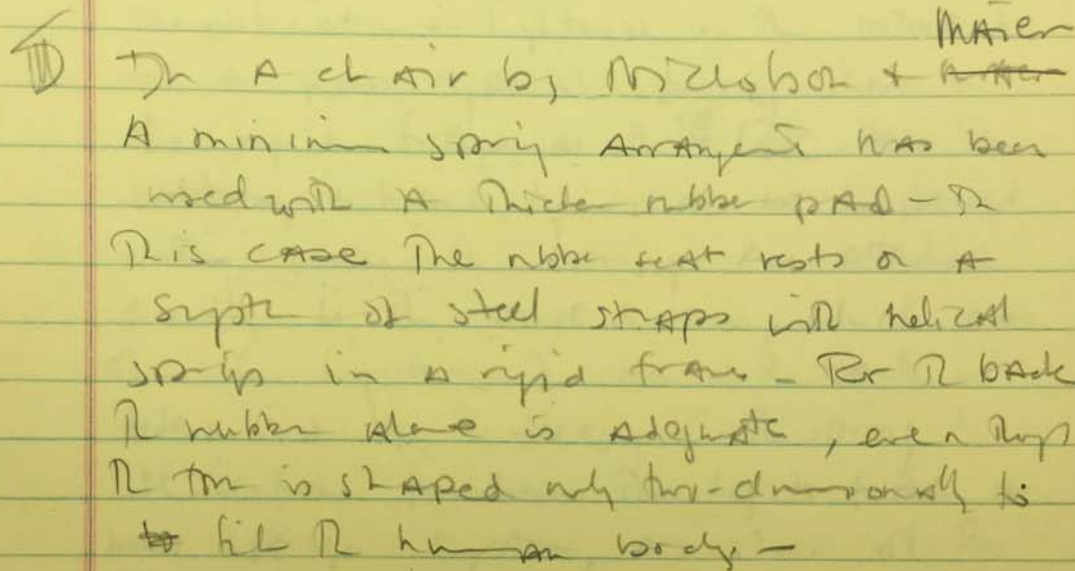 MAier
In A chair by Nicholson + 
A minimum spring Arrangement has been
used with A thicker rubber pAd - In
This CASE The rubber seat rests on A
System of steel straps with helical
springs in A rigid frame - For The bAck
The rubber alone is Adequate, even though
The form is shAped only two-dimensionally to
fit The human body -